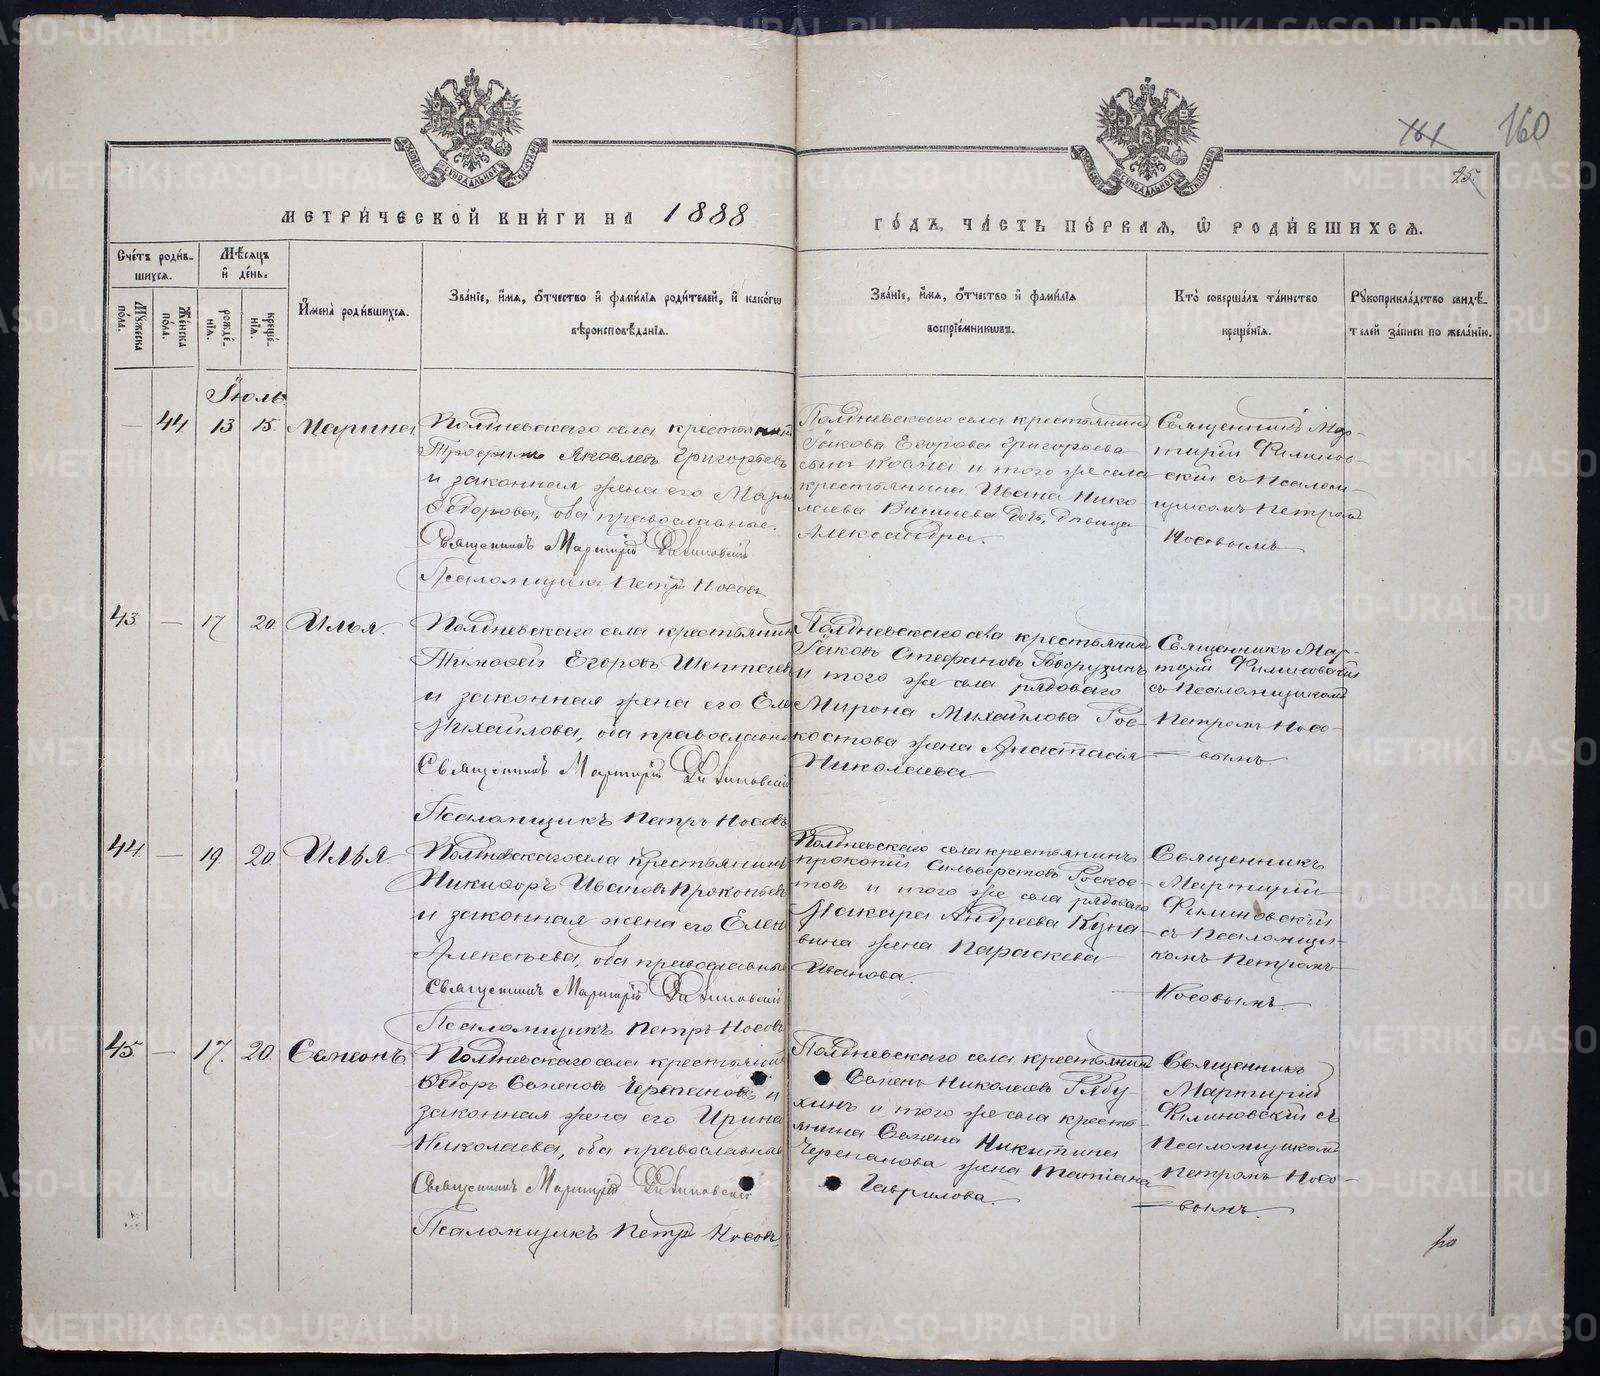 METRIKI.GASO-URAL.RU
161
160
25.
МЕТРИ́ЧЕСКОЙ КНИ́ГИ НА 1888
ГО́ДЪ, ЧА́СТЬ ПЕ́РВАЯ, Ѡ РОДИ́ВШИХСЯ.
Сче́тъ роди́в-
шихся.
Мѣ́сяцъ
и де́нь.
Му́жеска по́ла.
Же́нска по́ла.
рожде́-
нія.
креще́-
нія.
И́мена роди́вшихся.
Зва́ніе, и́мя, о́тчество и фами́лія роди́телей, и како́гѡ
вѣроисповѣ́данія.
Зва́ніе, и́мя, о́тчество и фами́лія
воспріе́мникѡвъ.
Кто̀ соверша́лъ та́инство
креще́нія.
Рꙋкоприкла́дство свидѣ́-
телей за́писи по жела́нію.
Іюль
— 44. 13 15 Марина
Полдневскаго села крестьянинъ
Трофимъ Яковлевъ Григорьевъ
и законная жена его
Ѳедорова, оба православные.
Священникъ Мартирій Филиповскій
Псаломщикъ Петръ Носовъ
Полдневскаго села крестьянина
Іакова Егорова Григорьева
сынъ и того же села
крестьянина Ивана Нико
лаева дочь, дѣвица
Александра.
Священникъ Мар-
тирій Филинов-
скій съ Псалом-
щикомъ Петромъ
Носовымъ
43. — 17 20. Илья.
Полдневскаго села крестьянинъ
Тимофей Егоровъ
и законная жена его Еле
Михайлова, оба православные
Священникъ Мартирій Филиповскій
Псаломщикъ Петръ Носовъ
Полдневскаго села крестьянинъ
Іаковъ Стефановъ
и того же села рядоваго
Мирона Михайлова Рос-
костова жена Анастасія
Николаева
Священникъ Мар-
тирій Филиновскій
съ Псаломщикомъ
Петромъ Носо-
вымъ.
44 — 19 20 Илья
Полдневскаго села крестьянинъ
Никифоръ Ивановъ Прокопьевъ
и законная жена его Елена
Алексѣева, оба православные
Священникъ Мартирій Филиповскій
Псаломщикъ Петръ Носовъ
Полдневскаго села крестьянинъ
Прокопій Сильверстовъ Роскос-
товъ и того же села рядоваго
Макара Андреева Куна-
вина жена Параскева
Иванова.
Священникъ
Мартирій
Филиновскій
съ Псаломщи-
комъ Петромъ
Носовымъ
45. — 17. 20. Симеонъ
Полдневскаго села крестьянинъ
Ѳедоръ Семеновъ Черепановъ и
законная жена его Ирина
Николаева, оба православные
Священникъ Мартирій Филиповскій
Псаломщикъ Петръ Носовъ.
Полдневскаго села крестьянинъ
Семенъ Николаевъ Рябу-
хинъ и того же села кресть-
янина Семена Никитина
Черепанова жена Татіана
Гаврилова.
Священникъ
Мартирій
Филиновскій съ
Псаломщикомъ
Петромъ Носо-
вымъ.